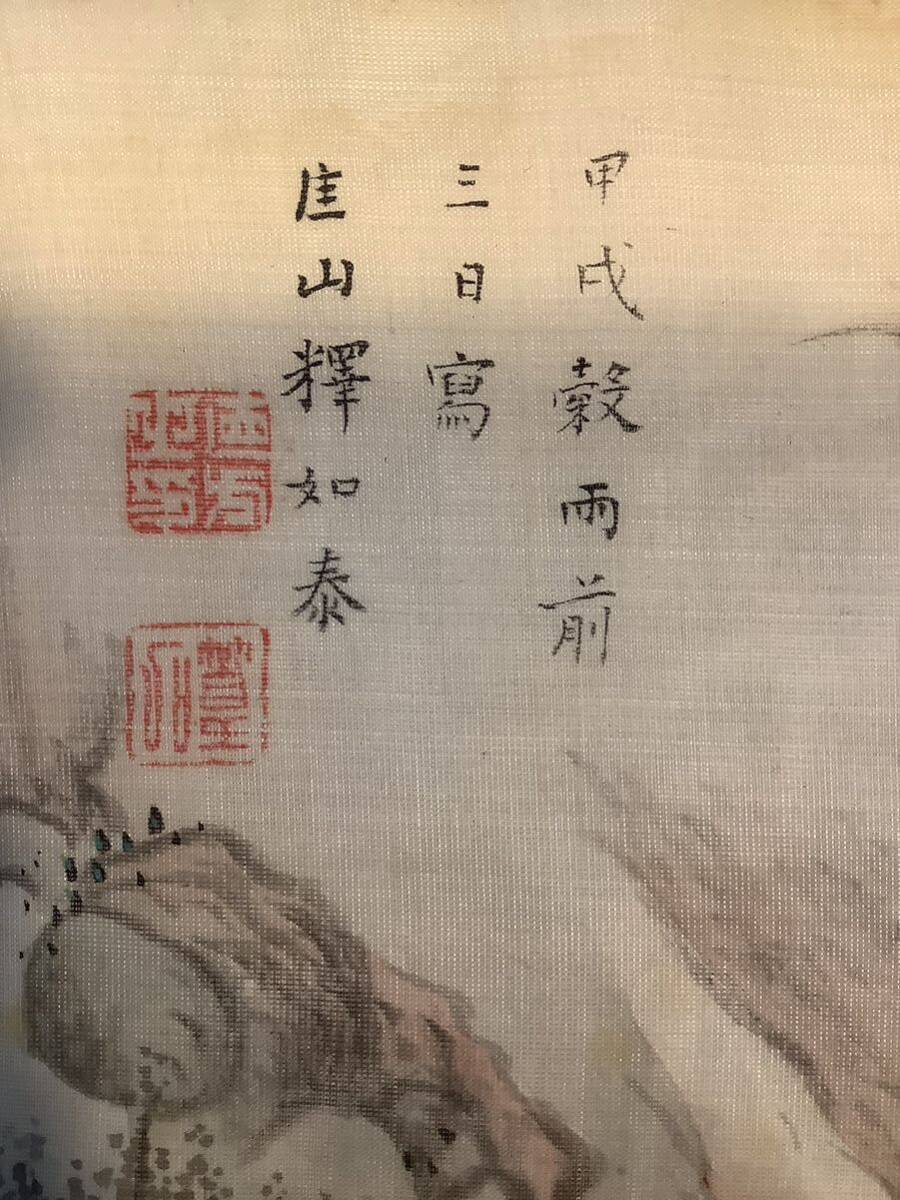 甲戌穀雨前
三日寫
匡山釋如泰